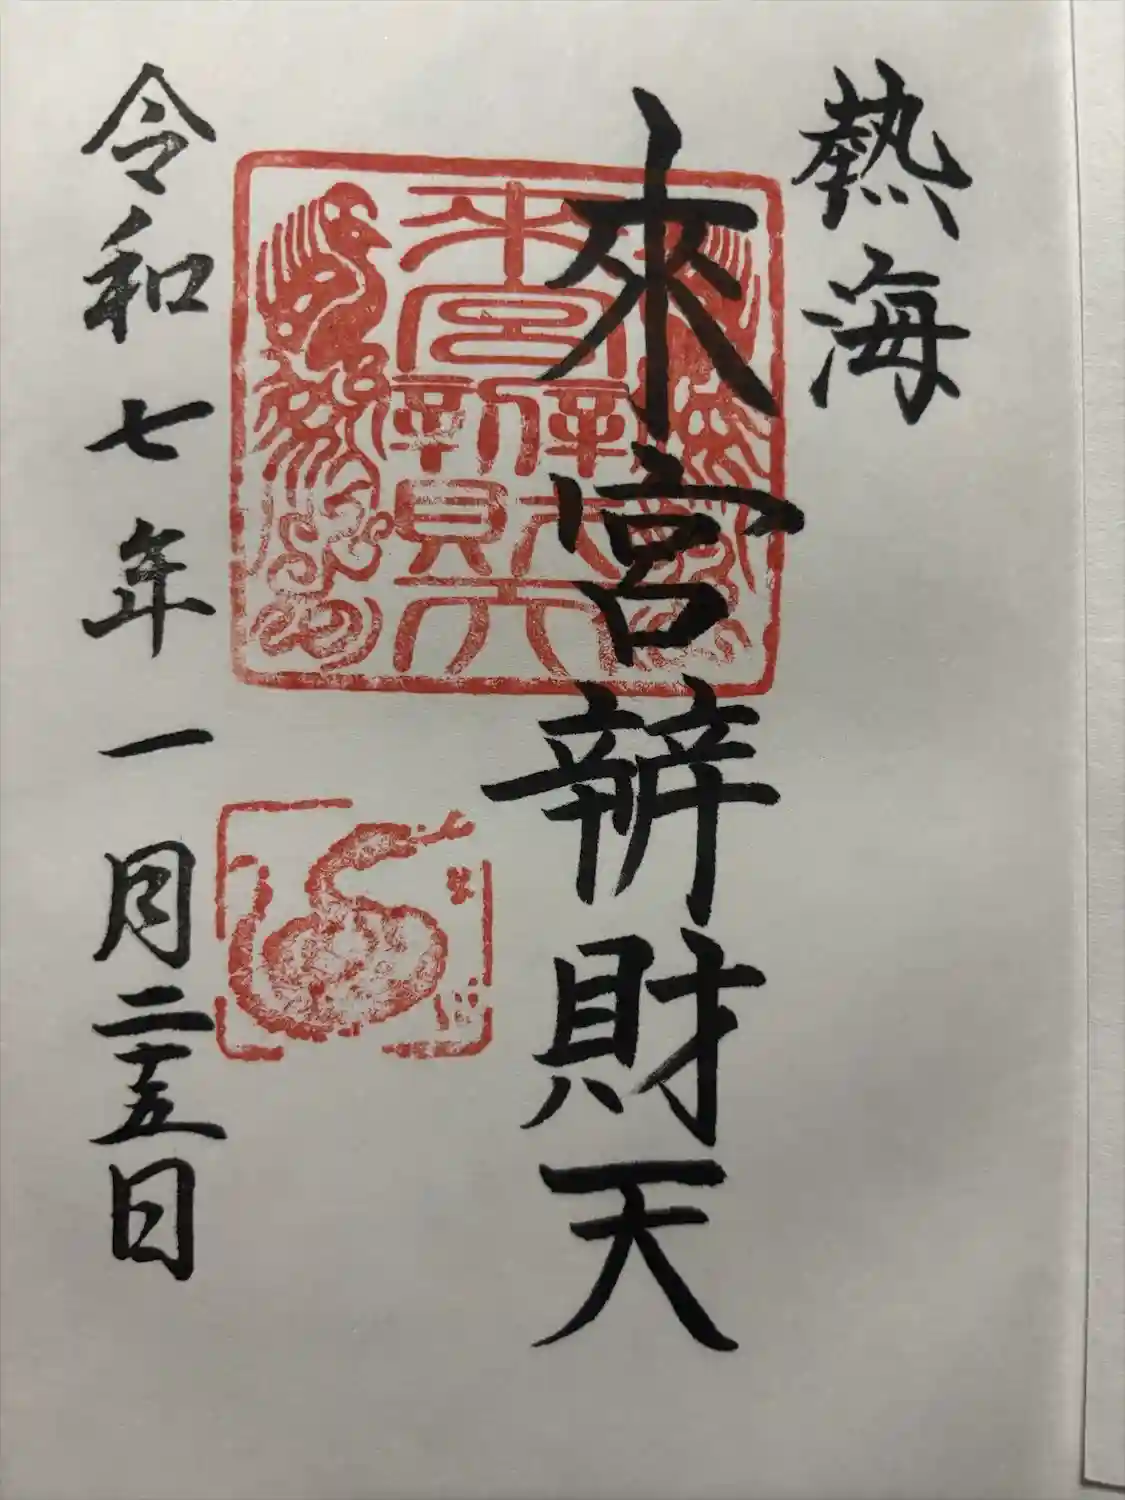 熱海
來宮辨財天
來宮辨財天
令和七年一月二十五日